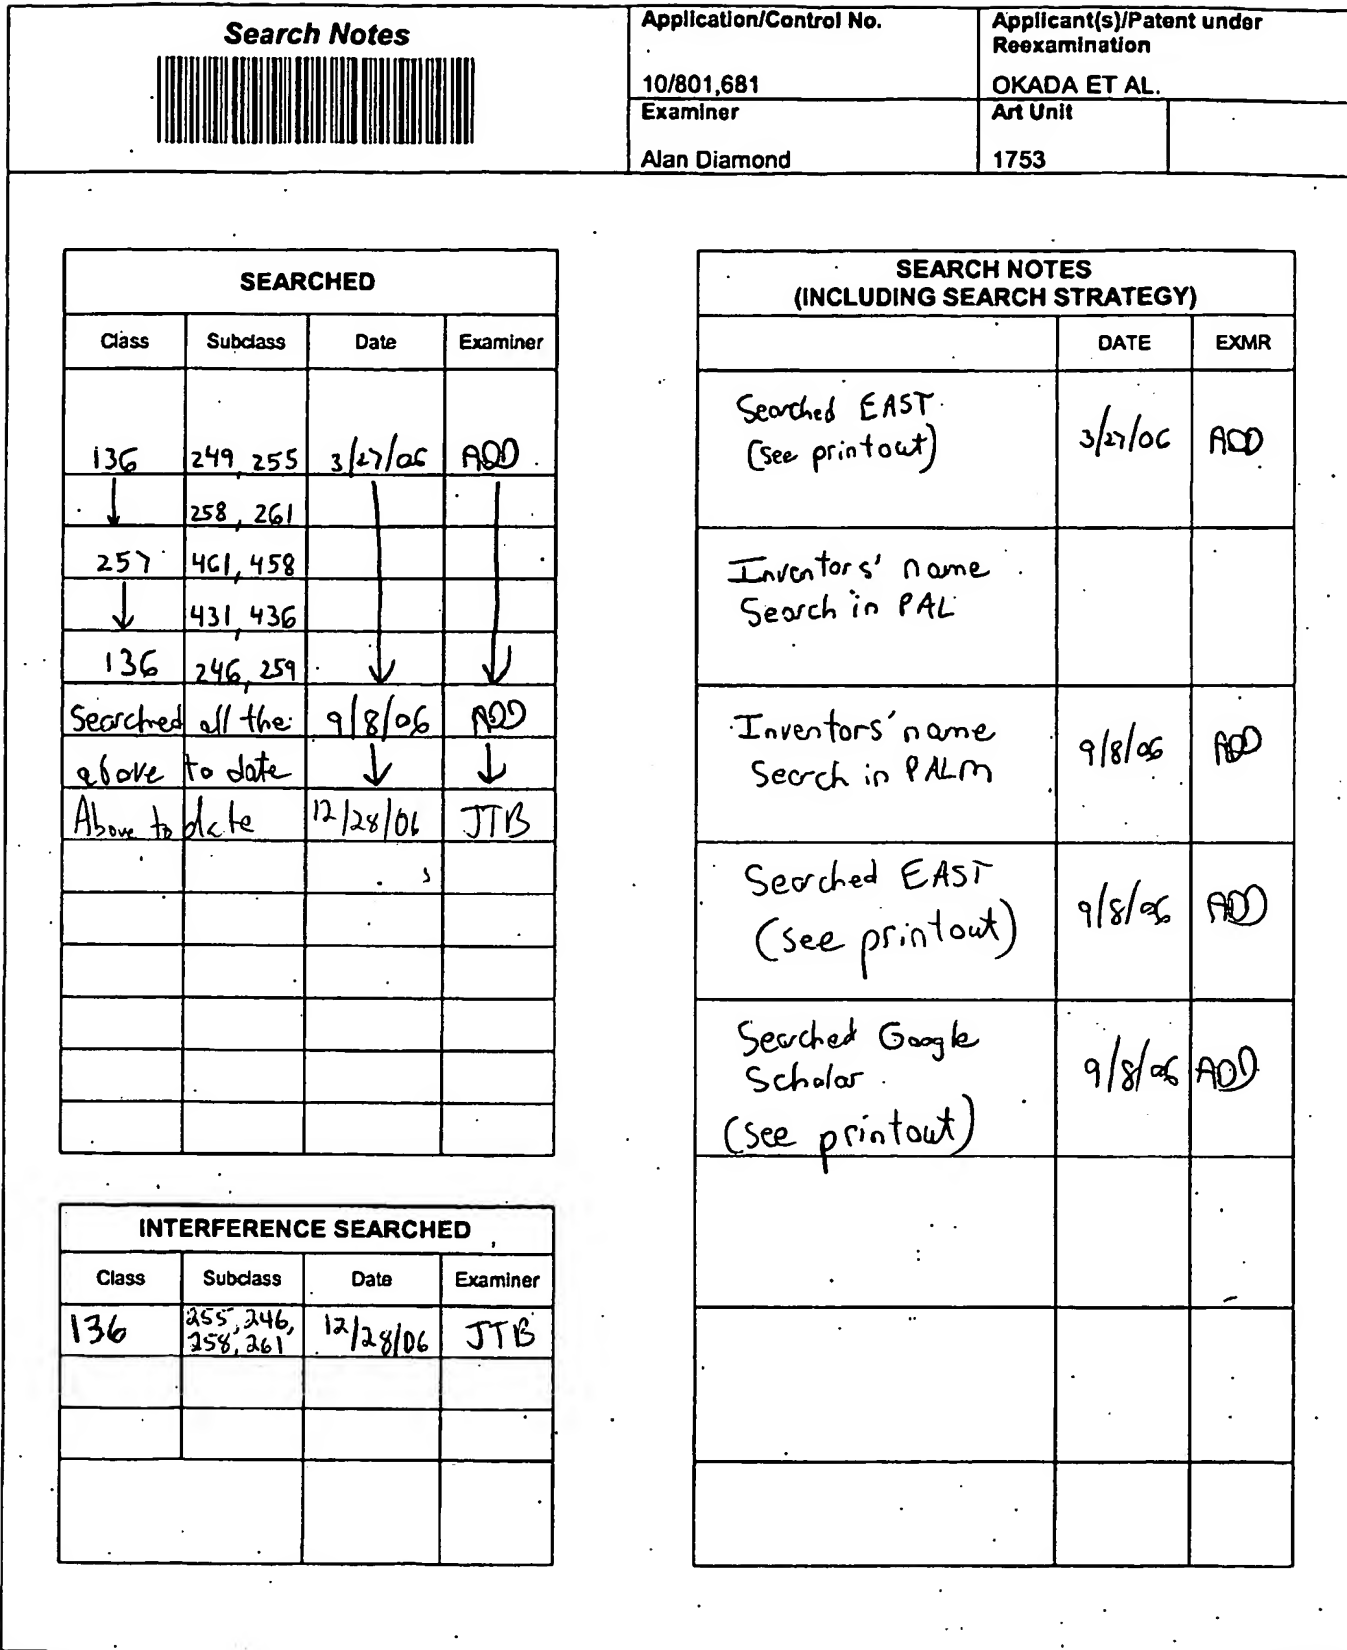 Search Notes
Application/Control No.
10/801,681
Applicant(s)/Patent under
Reexamination
OKADA ET AL.
Examiner
Alan Diamond
Art Unit
1753
SEARCHED
Class Subclass Date Examiner
136 249, 255 3/27/06 ADD
↓ 258, 261
257 461, 458
↓ 431, 436
136 246, 259 ↓ ↓
Searched all the 9/8/06 ADD
above to date ↓ ↓
Above to date 12/28/06 JTB
INTERFERENCE SEARCHED
Class Subclass Date Examiner
136 255, 246, 12/28/06 JTB
258, 261
SEARCH NOTES
(INCLUDING SEARCH STRATEGY)
DATE EXMR
Searched EAST
(see printout) 3/27/06 ADD
Inventors' name
Search in PAL
Inventors' name
Search in PALM 9/8/06 ADD
Searched EAST
(see printout) 9/8/06 ADD
Searched Google
Scholar 9/8/06 ADD
(see printout)